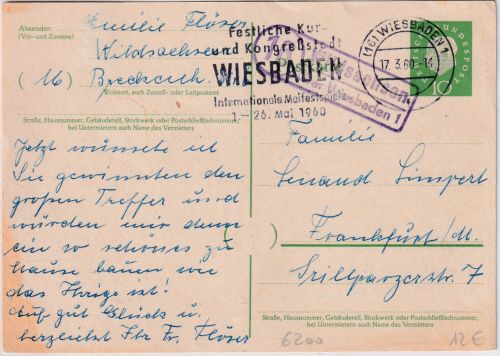 Absender:
(Vor- und Zuname)
Emilie Flöser
Wildsachsen
(16)
Wohnort, auch Zustell- oder Leitpostamt
Straße, Hausnummer, Gebäudeteil, Stockwerk oder Postschließfachnummer,
bei Untermietern auch Name des Vermieters
Festliche Kur-
und Kongreßstadt
WIESBADEN
Internationale Maifestspiele
1.-26. Mai 1960
(16) WIESBADEN 1
17.3.60.-14
Wildsachsen
über Wiesbaden 1
DEUTSCHE BUNDESPOST
10
Jetzt wünsche ich
Sie gewinnten den
großen Treffer und
würden mir dann
ein so schönes zu
Hause bauen wie
das Ihrige ist!
Auf gut Glück u.
herzlichst Ihr Fr. Flöser
Familie
Lenard Limpert
Frankfurt/M.
Grillparzerstr. 7
Straße, Hausnummer, Gebäudeteil, Stockwerk oder Postschließfachnummer,
bei Untermietern auch Name des Vermieters
6200
12€